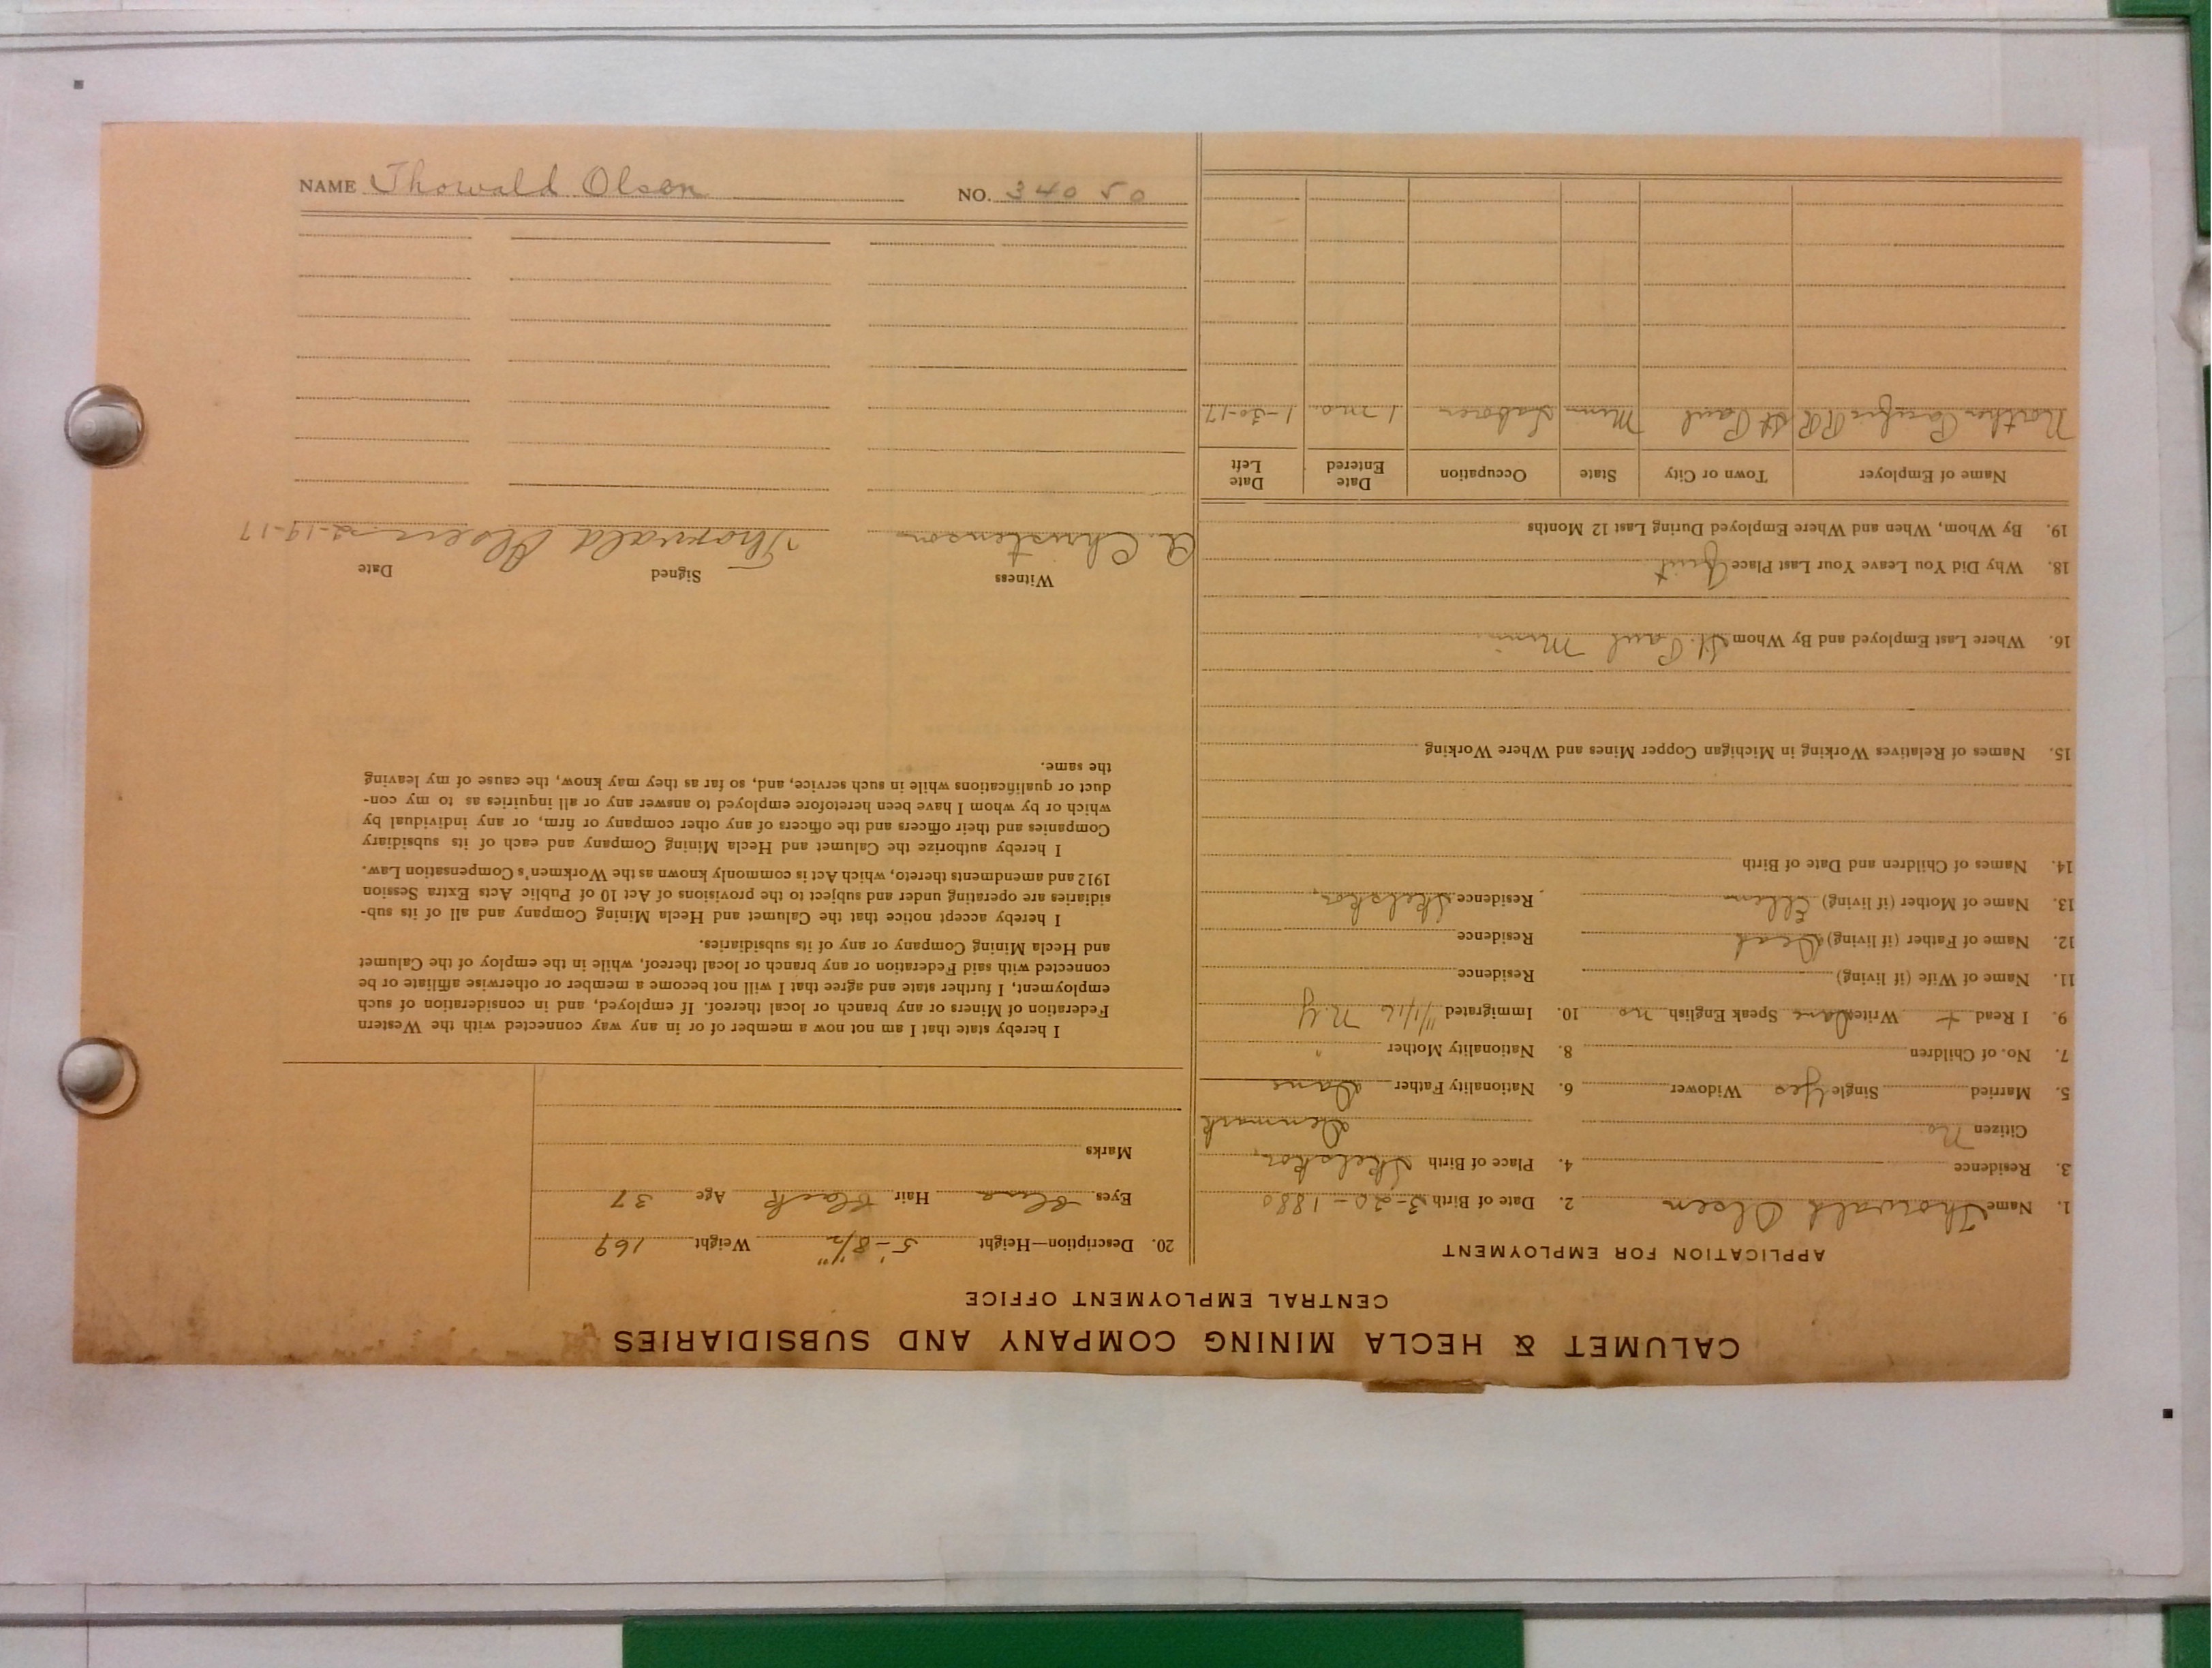 CALUMET & HECLA MINING COMPANY AND SUBSIDIARIES
CENTRAL EMPLOYMENT OFFICE
APPLICATION FOR EMPLOYMENT
1. Name Thorvald Olsen 2. Date of Birth 3-20-1880
3. Residence 4. Place of Birth Skelskor,
Citizen No. Denmark
5. Married Single Yes Widower 6. Nationality Father Dane
7. No. of Children 8. Nationality Mother "
9. I Read + Write Dane Speak English no 10. Immigrated 11/1/16 N.Y
11. Name of Wife (if living) Residence
12. Name of Father (if living) Dead Residence
13. Name of Mother (if living) Ellen Residence Skelskor,
14. Names of Children and Date of Birth
15. Names of Relatives Working in Michigan Copper Mines and Where Working
16. Where Last Employed and By Whom St. Paul Minn
18. Why Did You Leave Your Last Place Quit
19. By Whom, When and Where Employed During Last 12 Months
Name of Employer Town or City State Occupation Date Entered Date Left
Northern Pacific RR St Paul Minn Laborer 1 mo. 1-30-17
20. Description—Height 5'-8 1/2" Weight 169
Eyes Blue Hair Black Age 37
Marks
I hereby state that I am not now a member of or in any way connected with the Western
Federation of Miners or any branch or local thereof. If employed, and in consideration of such
employment, I further state and agree that I will not become a member or otherwise affiliate or be
connected with said Federation or any branch or local thereof, while in the employ of the Calumet
and Hecla Mining Company or any of its subsidiaries.
I hereby accept notice that the Calumet and Hecla Mining Company and all of its sub-
sidiaries are operating under and subject to the provisions of Act 10 of Public Acts Extra Session
1912 and amendments thereto, which Act is commonly known as the Workmen's Compensation Law.
I hereby authorize the Calumet and Hecla Mining Company and each of its subsidiary
Companies and their officers and the officers of any other company or firm, or any individual by
which or by whom I have been heretofore employed to answer any or all inquiries as to my con-
duct or qualifications while in such service, and, so far as they may know, the cause of my leaving
the same.
Witness Signed Date
A. Christenson Thorvald Olsen 2-19-17
NAME Thowald Olsen NO. 34050